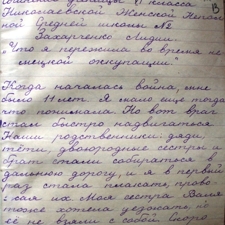 Сочинение ученицы VI класса
Николаевской Женской Непол
ной Средней школы №
Захарченко Лидии
"Что я пережила во время не-
мецкой оккупации"
Когда началась война, мне
было 11 лет. Я мало ещё тогда
что понимала. Но вот враг
стал быстро надвигаться.
Наши родственники: дяди,
тёти, двоюродные сестры и
брат стали собираться в
дальнюю дорогу, и я в первый
раз стала плакать, прово-
жая их. Моя сестра Валя
тоже хотела уезжать но
её не взяли с собой. Скоро